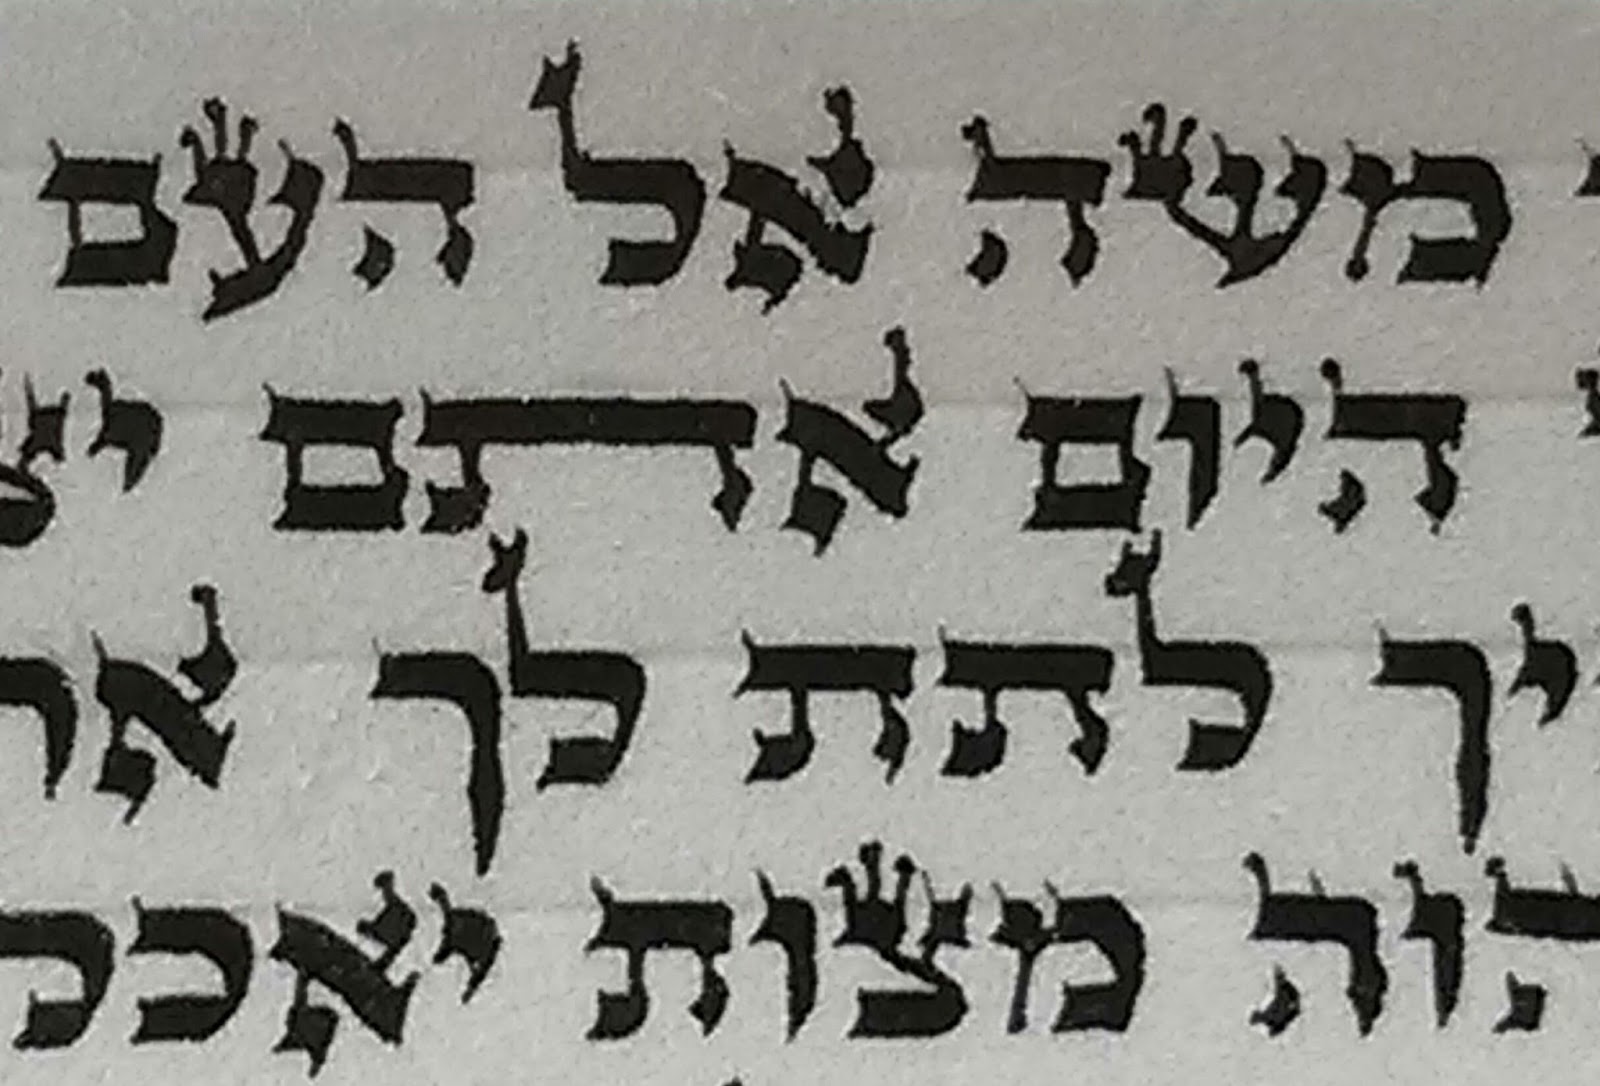 משה אל העם
היום אתם יצ
יך לתת לך אר
הוה מצות יאכ